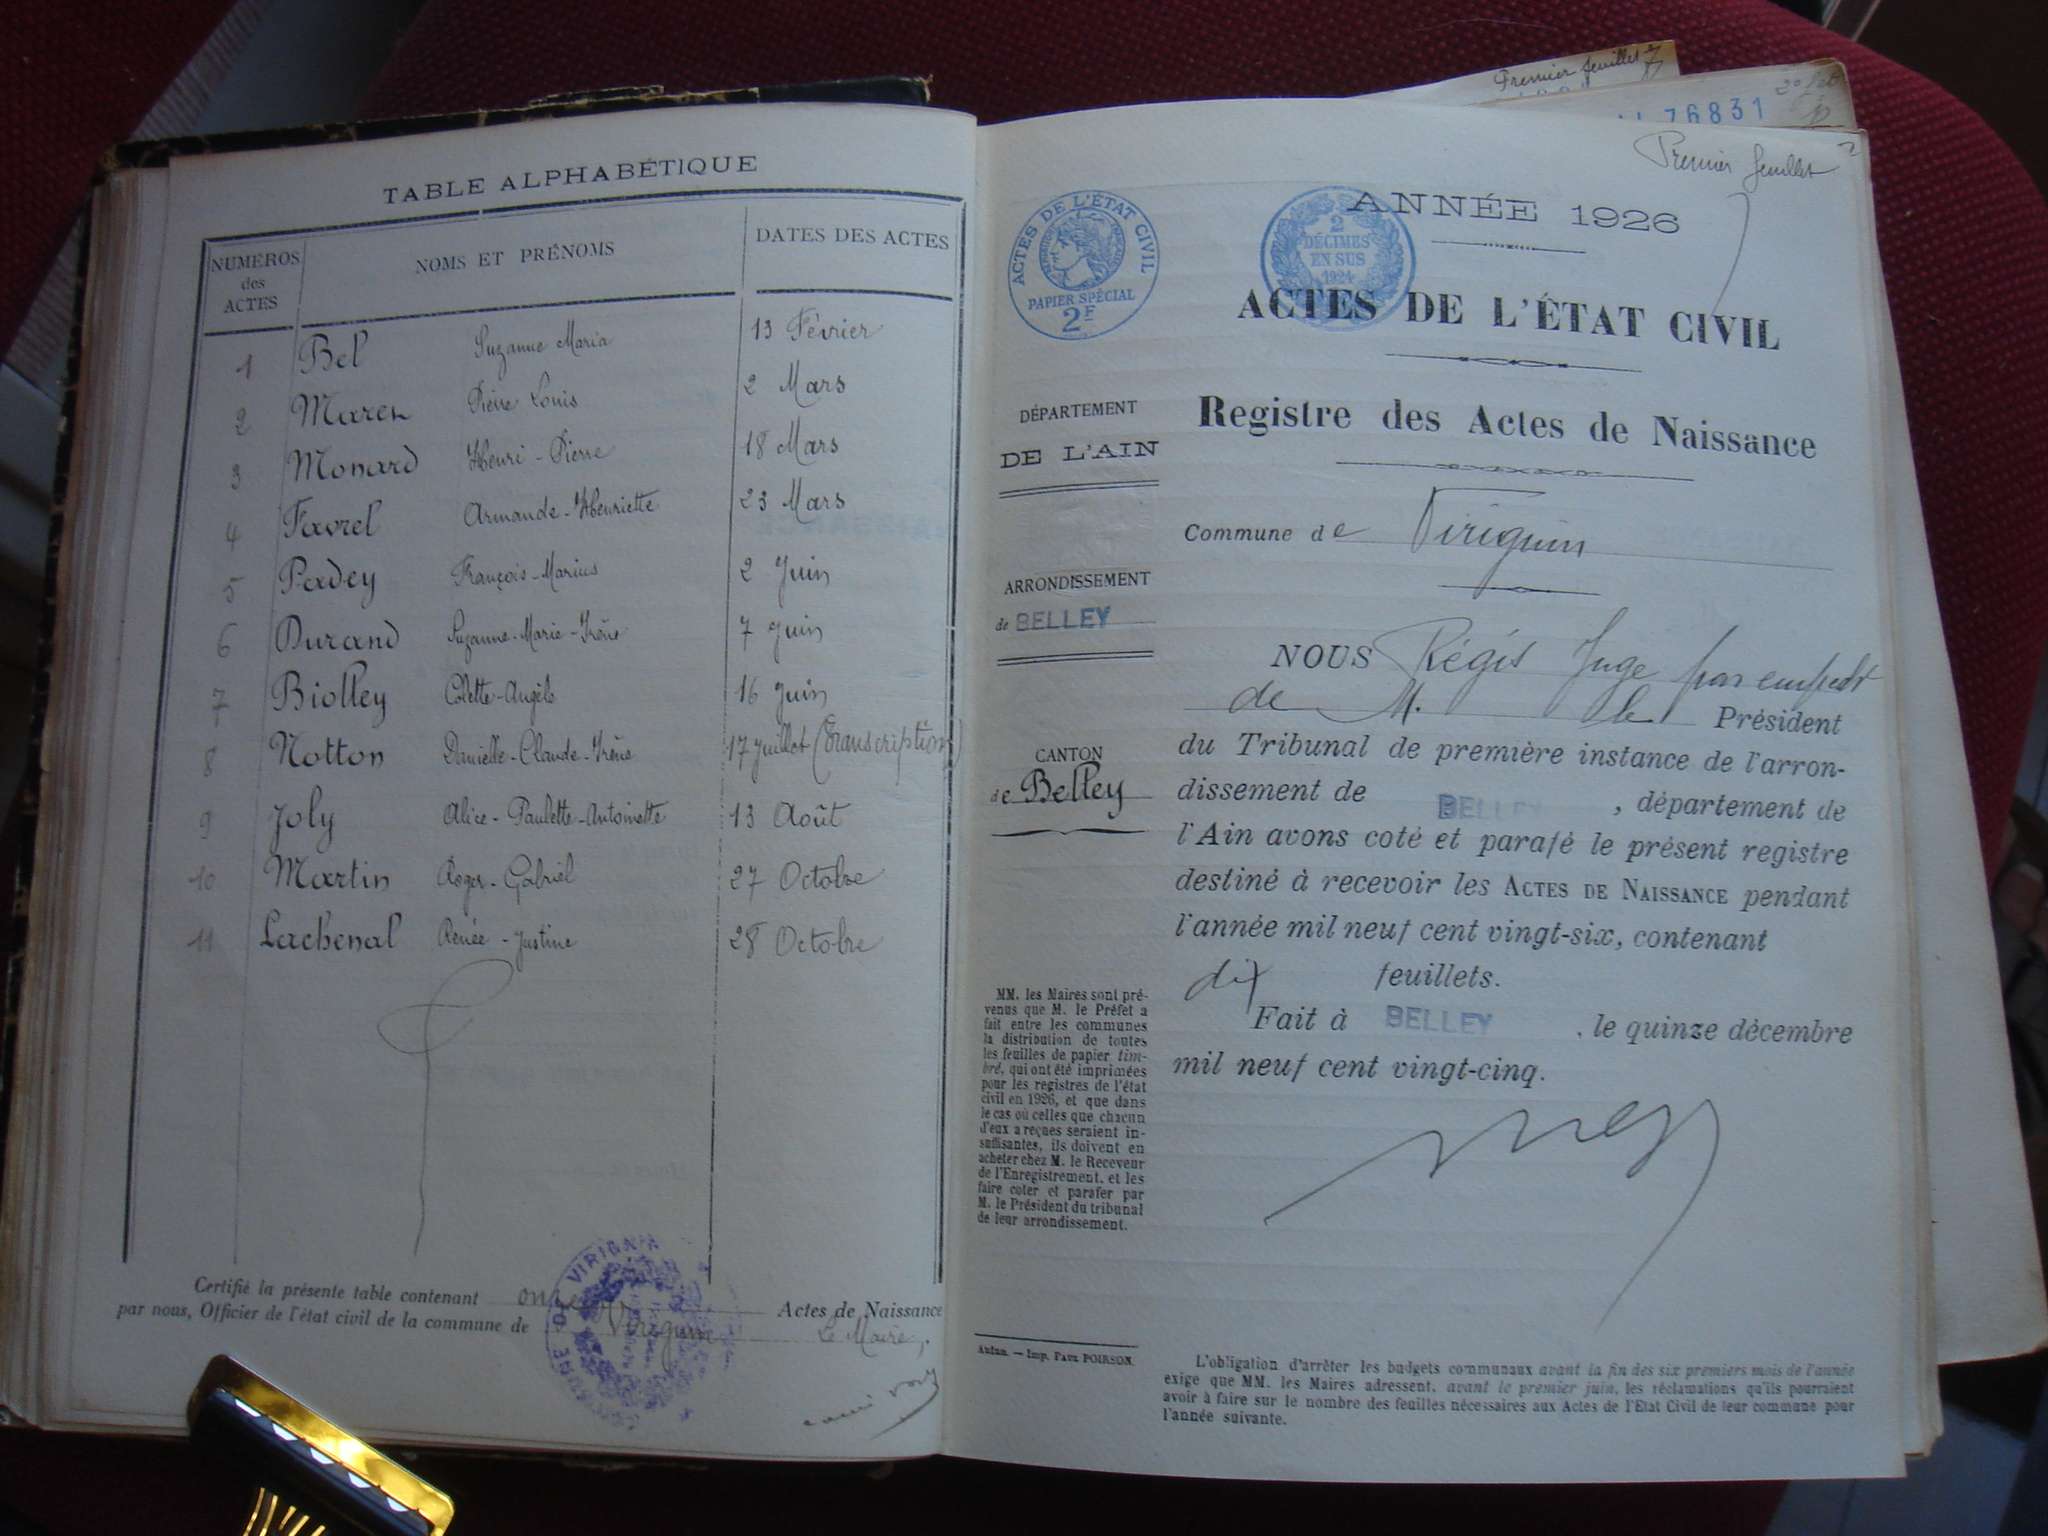 TABLE ALPHABÉTIQUE
NUMEROS des ACTES NOMS ET PRÉNOMS DATES DES ACTES
1 Bel Suzanne Maria 13 Février
2 Maren Pierre Louis 2 Mars
3 Monard Henri-Pierre 18 Mars
4 Favrel Armande-Henriette 23 Mars
5 Perdey François-Marius 2 Juin
6 Durand Suzanne-Marie-Irène 7 Juin
7 Biolley Colette-Angèle 16 Juin
8 Notton Danielle-Claude-Irène 17 Juillet (transcription)
9 Joly Alice-Paulette-Antoinette 13 Août
10 Martin Roger-Gabriel 27 Octobre
11 Lachenal Renée-Justine 28 Octobre
Certifié la présente table contenant onze Actes de Naissance
par nous, Officier de l'état civil de la commune de Virignin
Le Maire,
COMMUNE DE VIRIGNIN
Premier feuillet
76831
Premier feuillet
ANNÉE 1926
ACTES DE L'ÉTAT CIVIL
PAPIER SPÉCIAL
2F
2
DÉCIMES
EN SUS
1924
ACTES DE L'ÉTAT CIVIL
Registre des Actes de Naissance
Commune de Virignin
DÉPARTEMENT
DE L'AIN
ARRONDISSEMENT
de BELLEY
CANTON
de Belley
NOUS Régis Juge par empcht
de M. le Président
du Tribunal de première instance de l'arron-
dissement de BELLEY, département de
l'Ain avons coté et parafé le présent registre
destiné à recevoir les ACTES DE NAISSANCE pendant
l'année mil neuf cent vingt-six, contenant
dix feuillets.
Fait à BELLEY, le quinze décembre
mil neuf cent vingt-cinq.
MM. les Maires sont pré-
venus que M. le Préfet a
fait entre les communes
la distribution de toutes
les feuilles de papier tim-
bré, qui ont été imprimées
pour les registres de l'état
civil en 1926, et que dans
le cas où celles que chacun
d'eux a reçues seraient in-
suffisantes, ils doivent en
acheter chez M. le Receveur
de l'Enregistrement, et les
faire coter et parafer par
M. le Président du tribunal
de leur arrondissement.
Autun. — Imp. Paul POIRSON.
L'obligation d'arrêter les budgets communaux avant la fin des six premiers mois de l'année
exige que MM. les Maires adressent, avant le premier juin, les réclamations qu'ils pourraient
avoir à faire sur le nombre des feuilles nécessaires aux Actes de l'Etat Civil de leur commune pour
l'année suivante.